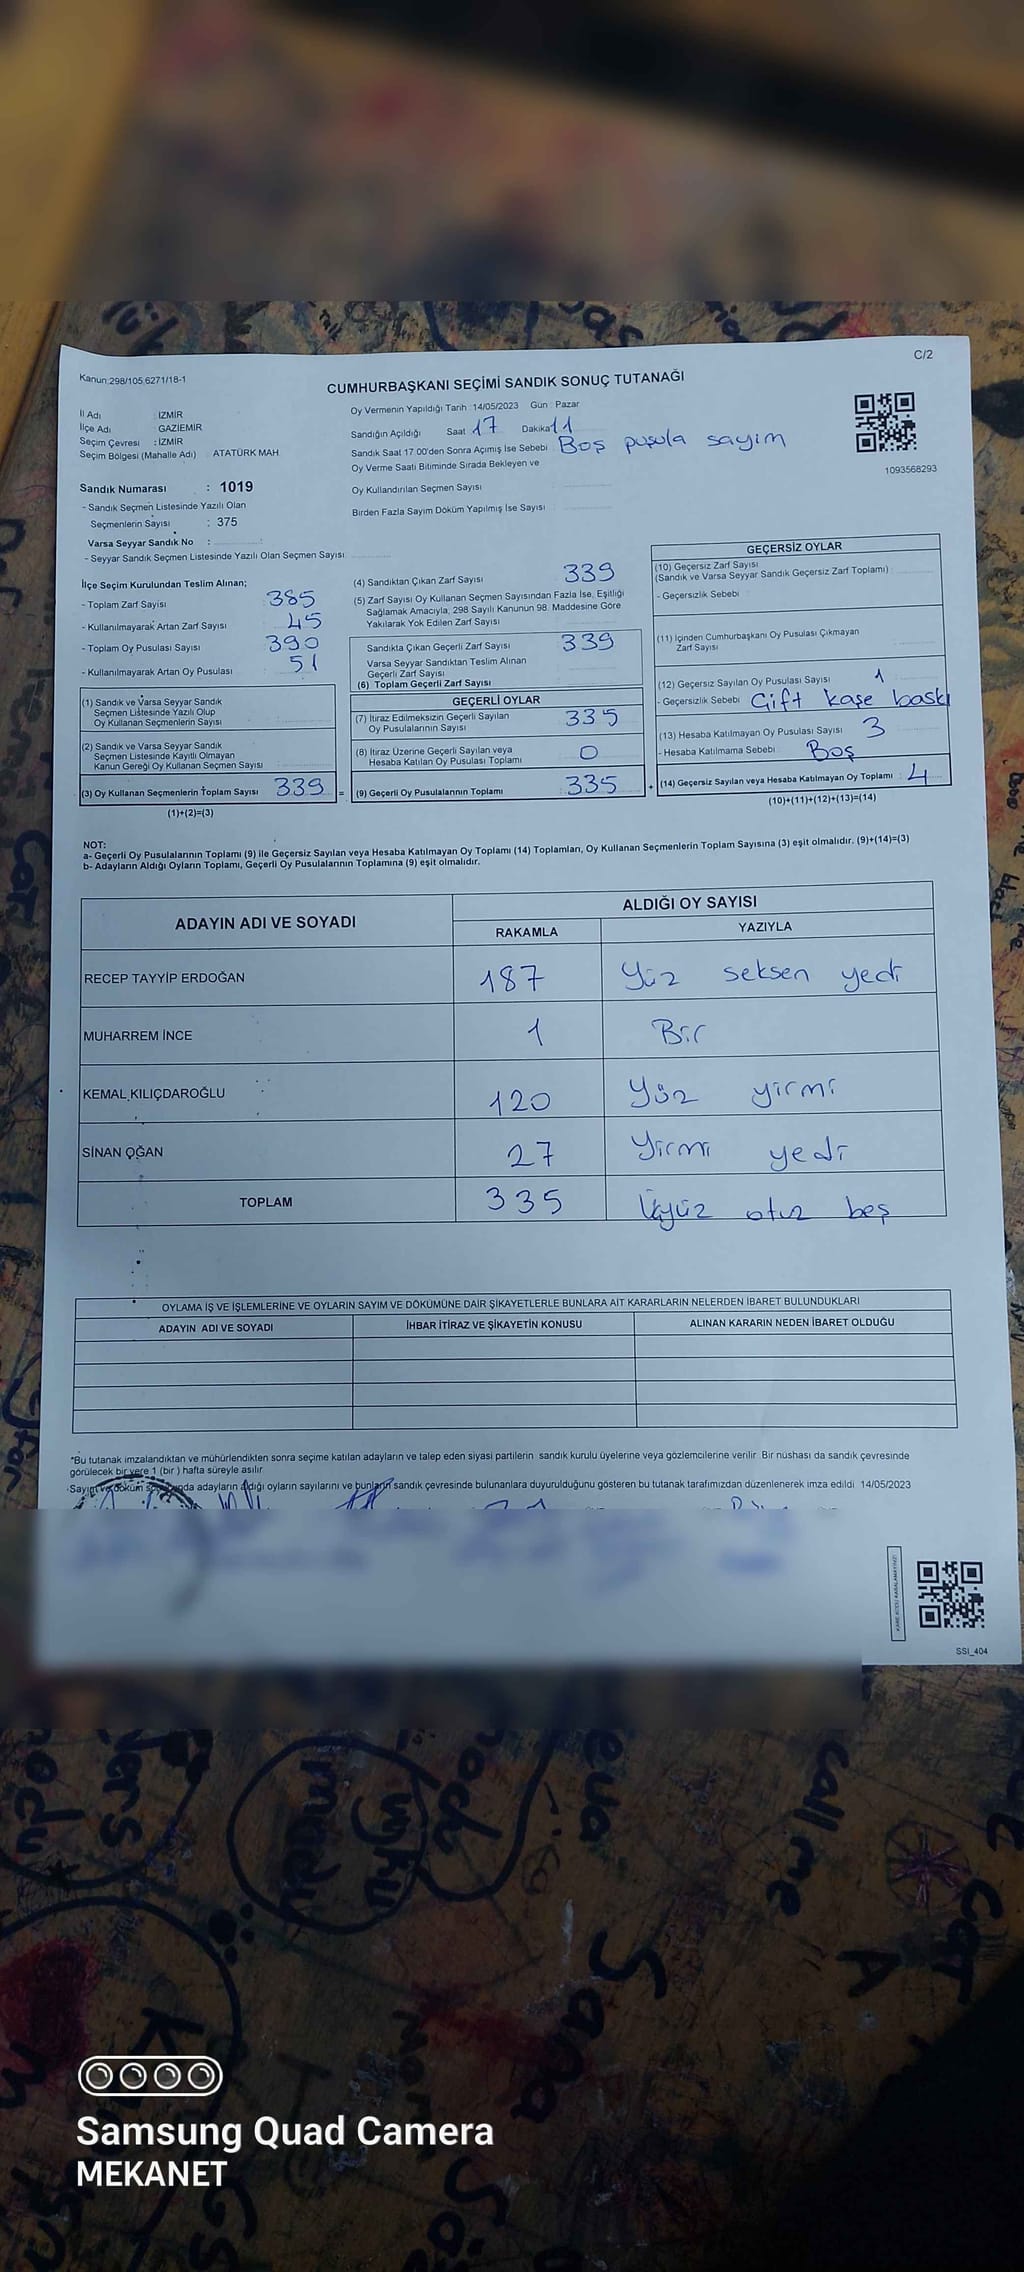 C/2
Kanun:298/105,6271/18-1
CUMHURBAŞKANI SEÇİMİ SANDIK SONUÇ TUTANAĞI
İl Adı : İZMİR
İlçe Adı : GAZİEMİR
Seçim Çevresi : İZMİR
Seçim Bölgesi (Mahalle Adı) ATATÜRK MAH
Sandık Numarası : 1019
- Sandık Seçmen Listesinde Yazılı Olan
Seçmenlerin Sayısı : 375
Varsa Seyyar Sandık No :
- Seyyar Sandık Seçmen Listesinde Yazılı Olan Seçmen Sayısı
Oy Vermenin Yapıldığı Tarih :14/05/2023 Gün : Pazar
Sandığın Açıldığı Saat 17 Dakika 11
Sandık Saat 17 00'den Sonra Açımış İse Sebebi Boş pusula sayım
Oy Verme Saati Bitiminde Sırada Bekleyen ve
Oy Kullandırılan Seçmen Sayısı
Birden Fazla Sayım Döküm Yapılmış İse Sayısı
1093568293
İlçe Seçim Kurulundan Teslim Alınan;
- Toplam Zarf Sayısı 385
- Kullanılmayarak Artan Zarf Sayısı 45
- Toplam Oy Pusulası Sayısı 390
- Kullanılmayarak Artan Oy Pusulası 51
(1) Sandık ve Varsa Seyyar Sandık
Seçmen Listesinde Yazılı Olup
Oy Kullanan Seçmenlerin Sayısı
(2) Sandık ve Varsa Seyyar Sandık
Seçmen Listesinde Kayıtlı Olmayan
Kanun Gereği Oy Kullanan Seçmen Sayısı
(3) Oy Kullanan Seçmenlerin Toplam Sayısı 339 =
(1)+(2)=(3)
(4) Sandıktan Çıkan Zarf Sayısı 339
(5) Zarf Sayısı Oy Kullanan Seçmen Sayısından Fazla İse, Eşitliği
Sağlamak Amacıyla, 298 Sayılı Kanunun 98. Maddesine Göre
Yakılarak Yok Edilen Zarf Sayısı
Sandıkta Çıkan Geçerli Zarf Sayısı 339
Varsa Seyyar Sandıktan Teslim Alınan
Geçerli Zarf Sayısı
(6) Toplam Geçerli Zarf Sayısı
GEÇERLİ OYLAR
(7) İtiraz Edilmeksizin Geçerli Sayılan
Oy Pusulalarının Sayısı 335
(8) İtiraz Üzerine Geçerli Sayılan veya
Hesaba Katılan Oy Pusulası Toplamı 0
(9) Geçerli Oy Pusulalarının Toplamı 335 +
GEÇERSİZ OYLAR
(10) Geçersiz Zarf Sayısı
(Sandık ve Varsa Seyyar Sandık Geçersiz Zarf Toplamı)
- Geçersizlik Sebebi
(11) İçinden Cumhurbaşkanı Oy Pusulası Çıkmayan
Zarf Sayısı
(12) Geçersiz Sayılan Oy Pusulası Sayısı 1
- Geçersizlik Sebebi Çift kaşe baskı
(13) Hesaba Katılmayan Oy Pusulası Sayısı 3
- Hesaba Katılmama Sebebi Boş
(14) Geçersiz Sayılan veya Hesaba Katılmayan Oy Toplamı : 4
(10)+(11)+(12)+(13)=(14)
NOT:
a- Geçerli Oy Pusulalarının Toplamı (9) ile Geçersiz Sayılan veya Hesaba Katılmayan Oy Toplamı (14) Toplamları, Oy Kullanan Seçmenlerin Toplam Sayısına (3) eşit olmalıdır. (9)+(14)=(3)
b- Adayların Aldığı Oyların Toplamı, Geçerli Oy Pusulalarının Toplamına (9) eşit olmalıdır.
ADAYIN ADI VE SOYADI
ALDIĞI OY SAYISI
RAKAMLA YAZIYLA
RECEP TAYYİP ERDOĞAN 187 Yüz seksen yedi
MUHARREM İNCE 1 Bir
KEMAL KILIÇDAROĞLU 120 Yüz yirmi
SİNAN OĞAN 27 Yirmi yedi
TOPLAM 335 Üçyüz otuz beş
OYLAMA İŞ VE İŞLEMLERİNE VE OYLARIN SAYIM VE DÖKÜMÜNE DAİR ŞİKAYETLERLE BUNLARA AİT KARARLARIN NELERDEN İBARET BULUNDUKLARI
ADAYIN ADI VE SOYADI İHBAR İTİRAZ VE ŞİKAYETİN KONUSU ALINAN KARARIN NEDEN İBARET OLDUĞU
*Bu tutanak imzalandıktan ve mühürlendikten sonra seçime katılan adayların ve talep eden siyasi partilerin sandık kurulu üyelerine veya gözlemcilerine verilir. Bir nüshası da sandık çevresinde
görülecek bir yere 1 (bir) hafta süreyle asılır
Sayım ve döküm adayların aldığı oyların sayılarını ve bunların sandık çevresinde bulunanlara duyurulduğunu gösteren bu tutanak tarafımızdan düzenlenerek imza edildi 14/05/2023
SSI_404
call me
Samsung Quad Camera
MEKANET